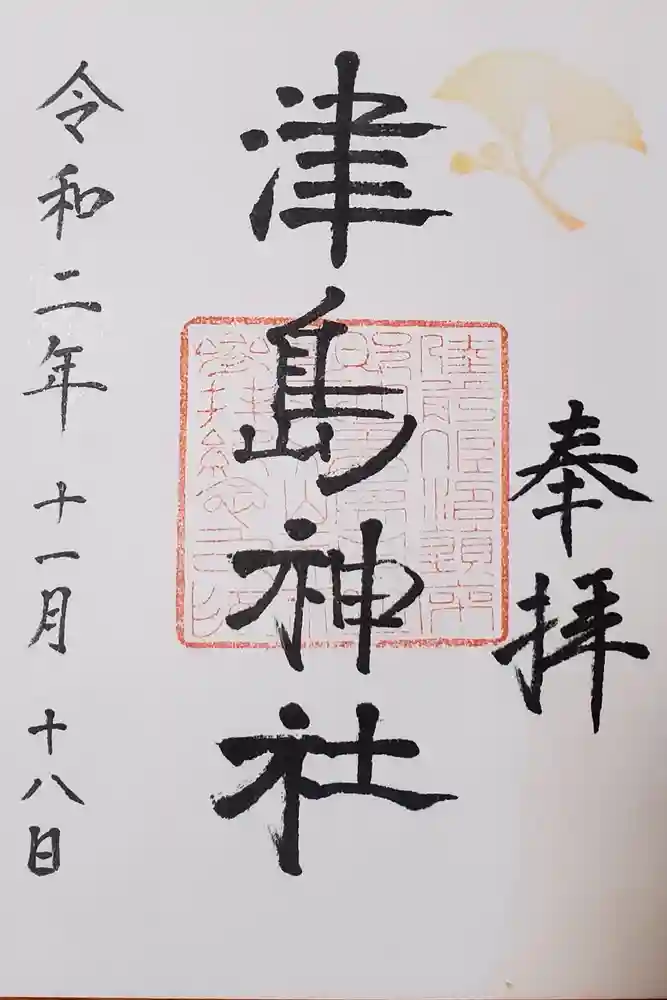 奉拝
津島神社
令和二年十一月十八日